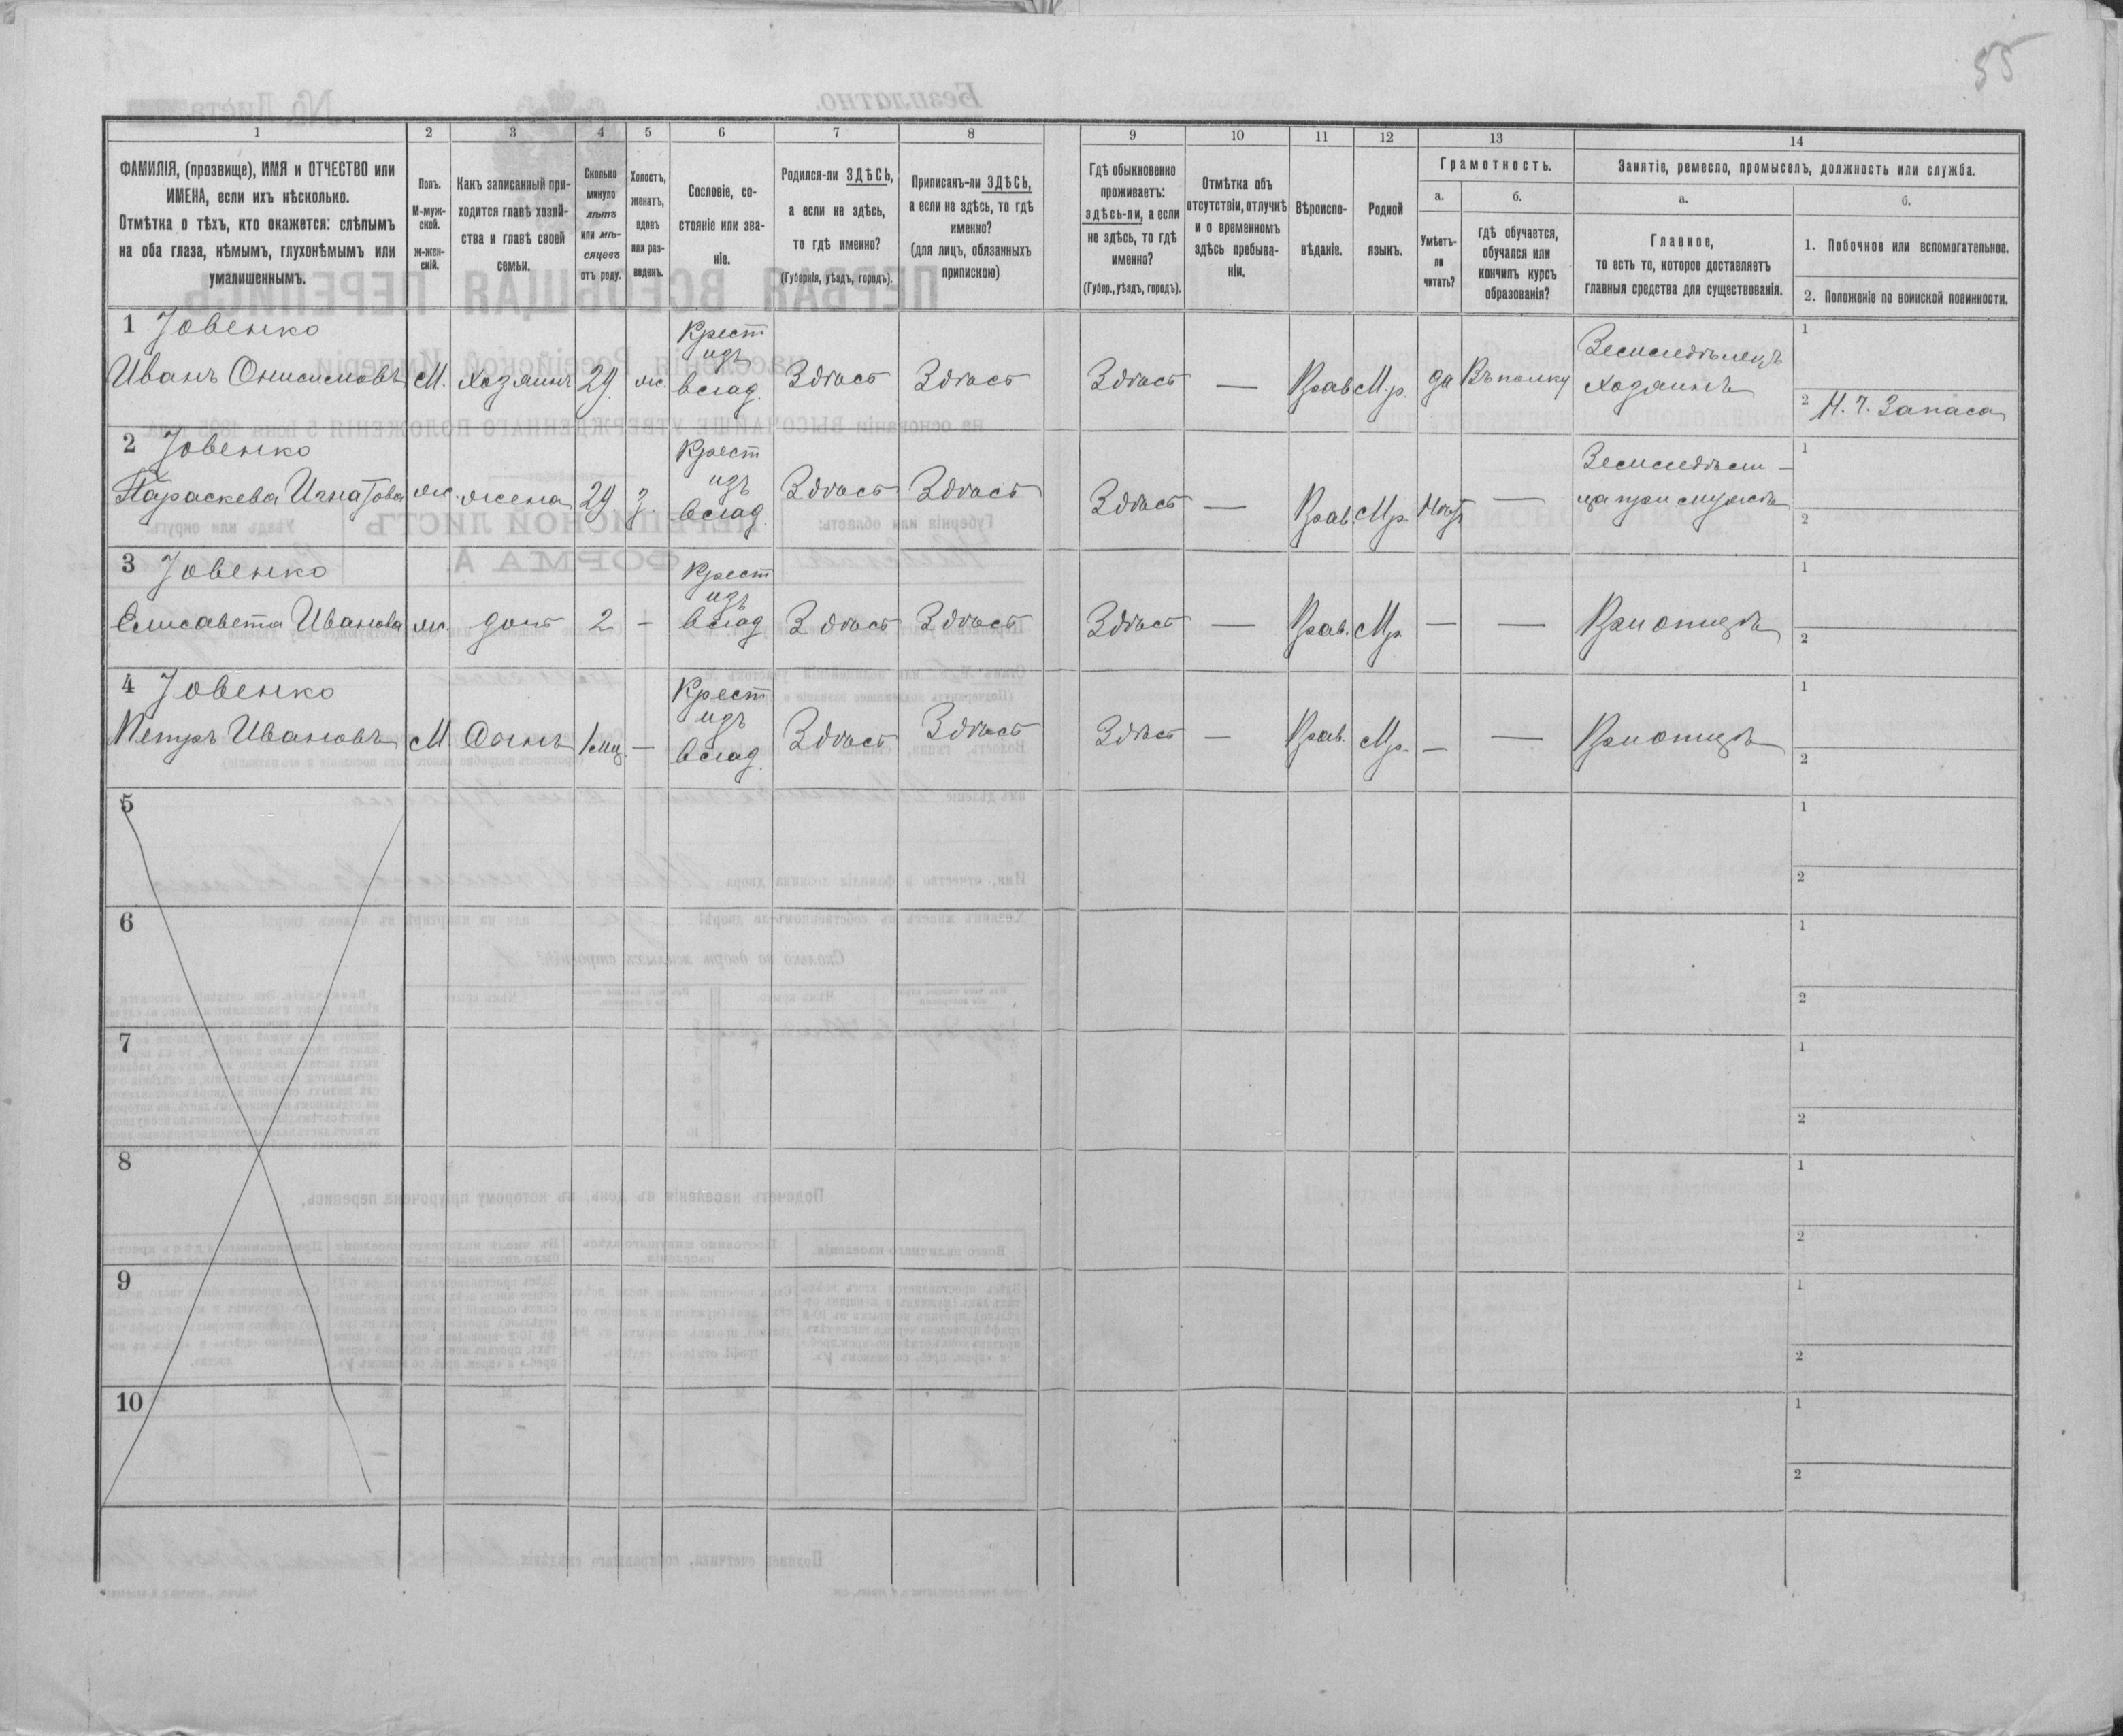 55
1 2 3 4 5 6 7 8 9 10 11 12 13 14
ФАМИЛІЯ, (прозвище), ИМЯ и ОТЧЕСТВО или
ИМЕНА, если ихъ нѣсколько.
Отмѣтка о тѣхъ, кто окажется: слѣпымъ
на оба глаза, нѣмымъ, глухонѣмымъ или
умалишеннымъ.
Полъ.
М-муж-
ской.
ж-жен-
скій.
Какъ записанный при-
ходится главѣ хозяй-
ства и главѣ своей
семьи.
Сколько
минуло
лѣтъ
или мѣ-
сяцевъ
отъ роду.
Холостъ,
женатъ,
вдовъ
или раз-
веденъ.
Сословіе, со-
стояніе или зва-
ніе.
Родился-ли ЗДѢСЬ,
а если не здѣсь,
то гдѣ именно?
(Губернія, уѣздъ, городъ).
Приписанъ-ли ЗДѢСЬ,
а если не здѣсь, то гдѣ
именно?
(для лицъ, обязанныхъ
припискою)
Гдѣ обыкновенно
проживаетъ:
здѣсь-ли, а если
не здѣсь, то гдѣ
именно?
(Губер., уѣздъ, городъ).
Отмѣтка объ
отсутствіи, отлучкѣ
и о временномъ
здѣсь пребыва-
ніи.
Вѣроиспо-
вѣданіе.
Родной
языкъ.
Грамотность.
а.
Умѣетъ-
ли
читать?
б.
гдѣ обучается,
обучался или
кончилъ курсъ
образованія?
Занятіе, ремесло, промыселъ, должность или служба.
а.
Главное,
то есть то, которое доставляетъ
главныя средства для существованія.
б.
1. Побочное или вспомогательное.
2. Положеніе по воинской повинности.
1 Іовенко Крест Земледѣлецъ 1
изъ
Иванъ Онисимовъ М. хозяинъ 29. ж. влад. Здѣсь Здѣсь Здѣсь — Прав М.р. да Въ полку хозяинъ
2 Н. ч. Запаса
2 Іовенко Крест Земледѣли- 1
изъ
Параскева Игнатова ж. жена 29. з. влад. Здѣсь Здѣсь Здѣсь — Прав. М.р. Нѣтъ — ца при мужѣ
2
3 Іовенко Крест 1
изъ
Елисавета Иванова ж. дочь 2 — влад Здѣсь Здѣсь Здѣсь — Прав. М.р. — — При отцѣ
2
4 Іовенко Крест 1
изъ
Петръ Ивановъ М. Сынъ 1 мц. — влад. Здѣсь Здѣсь Здѣсь — Прав. М.р. — — При отцѣ
2
5 1
2
6 1
2
7 1
2
8 1
2
9 1
2
10 1
2